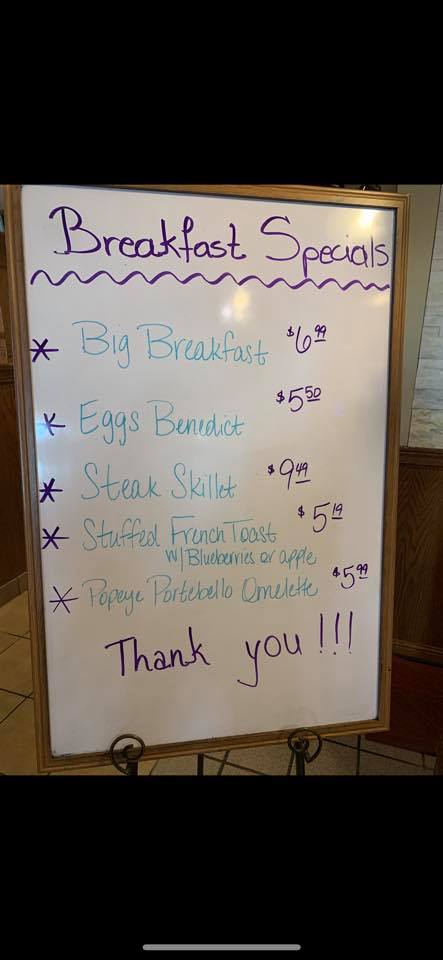 Breakfast Specials
* Big Breakfast $6 99
* Eggs Benedict $5 50
* Steak Skillet $9 49
* Stuffed French Toast $5 19
w/Blueberries or apple
* Popeye Portebello Omelette $5 99
Thank you!!!